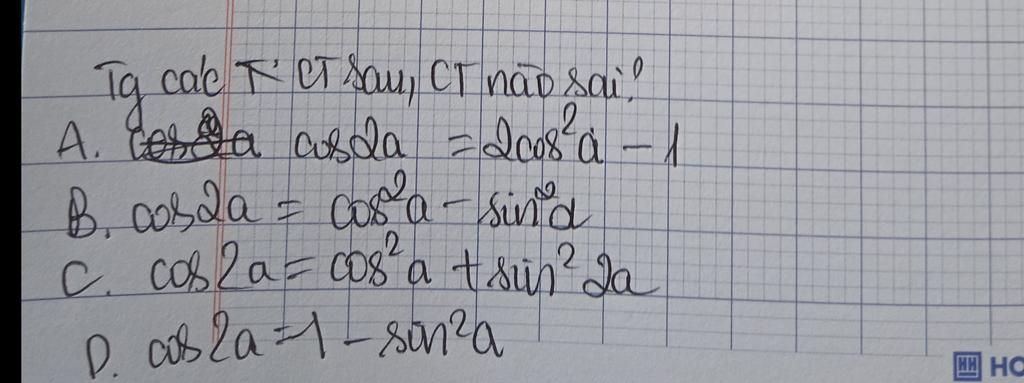 Tg các T' CT sau, CT nào sai?
A. cos2a = 2cos²a - 1
B. cos2a = cos²a - sin²a
C. cos2a = cos²a + sin²2a
D. cos2a = 1 - sin²a
HO